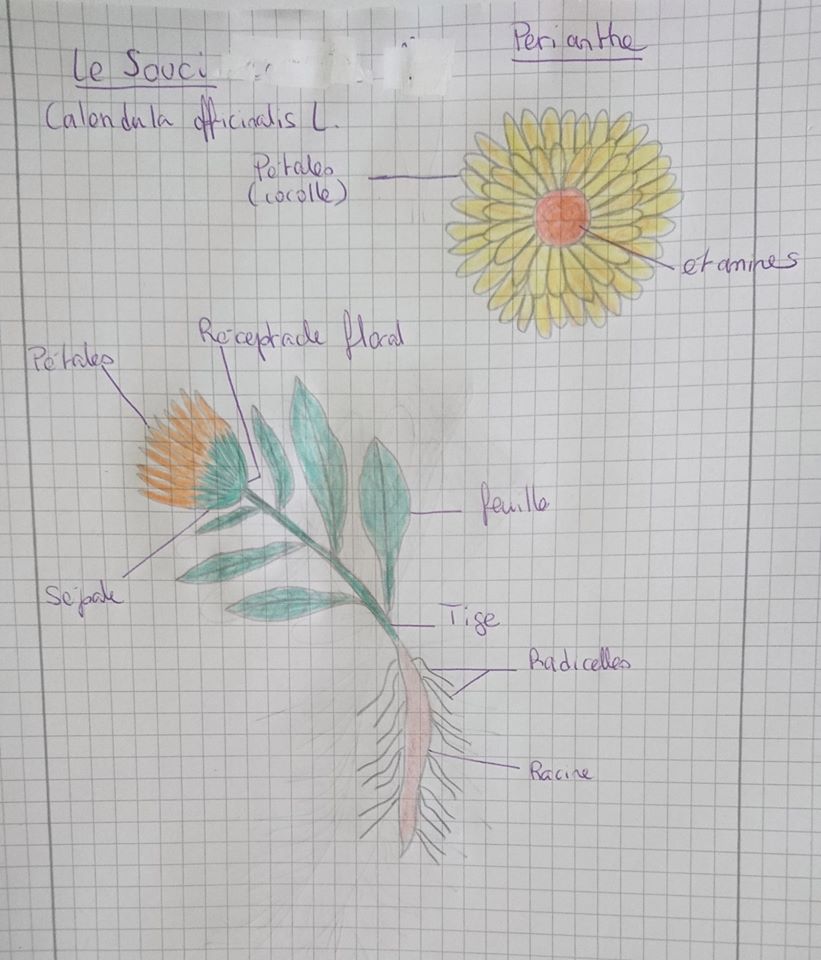 Le Souci
Perianthe
Calendula officinalis L.
Pétales
(cocolle)
etamines
Réceptacle floral
Pétales
feuille
Sépale
Tige
Radicelles
Racine